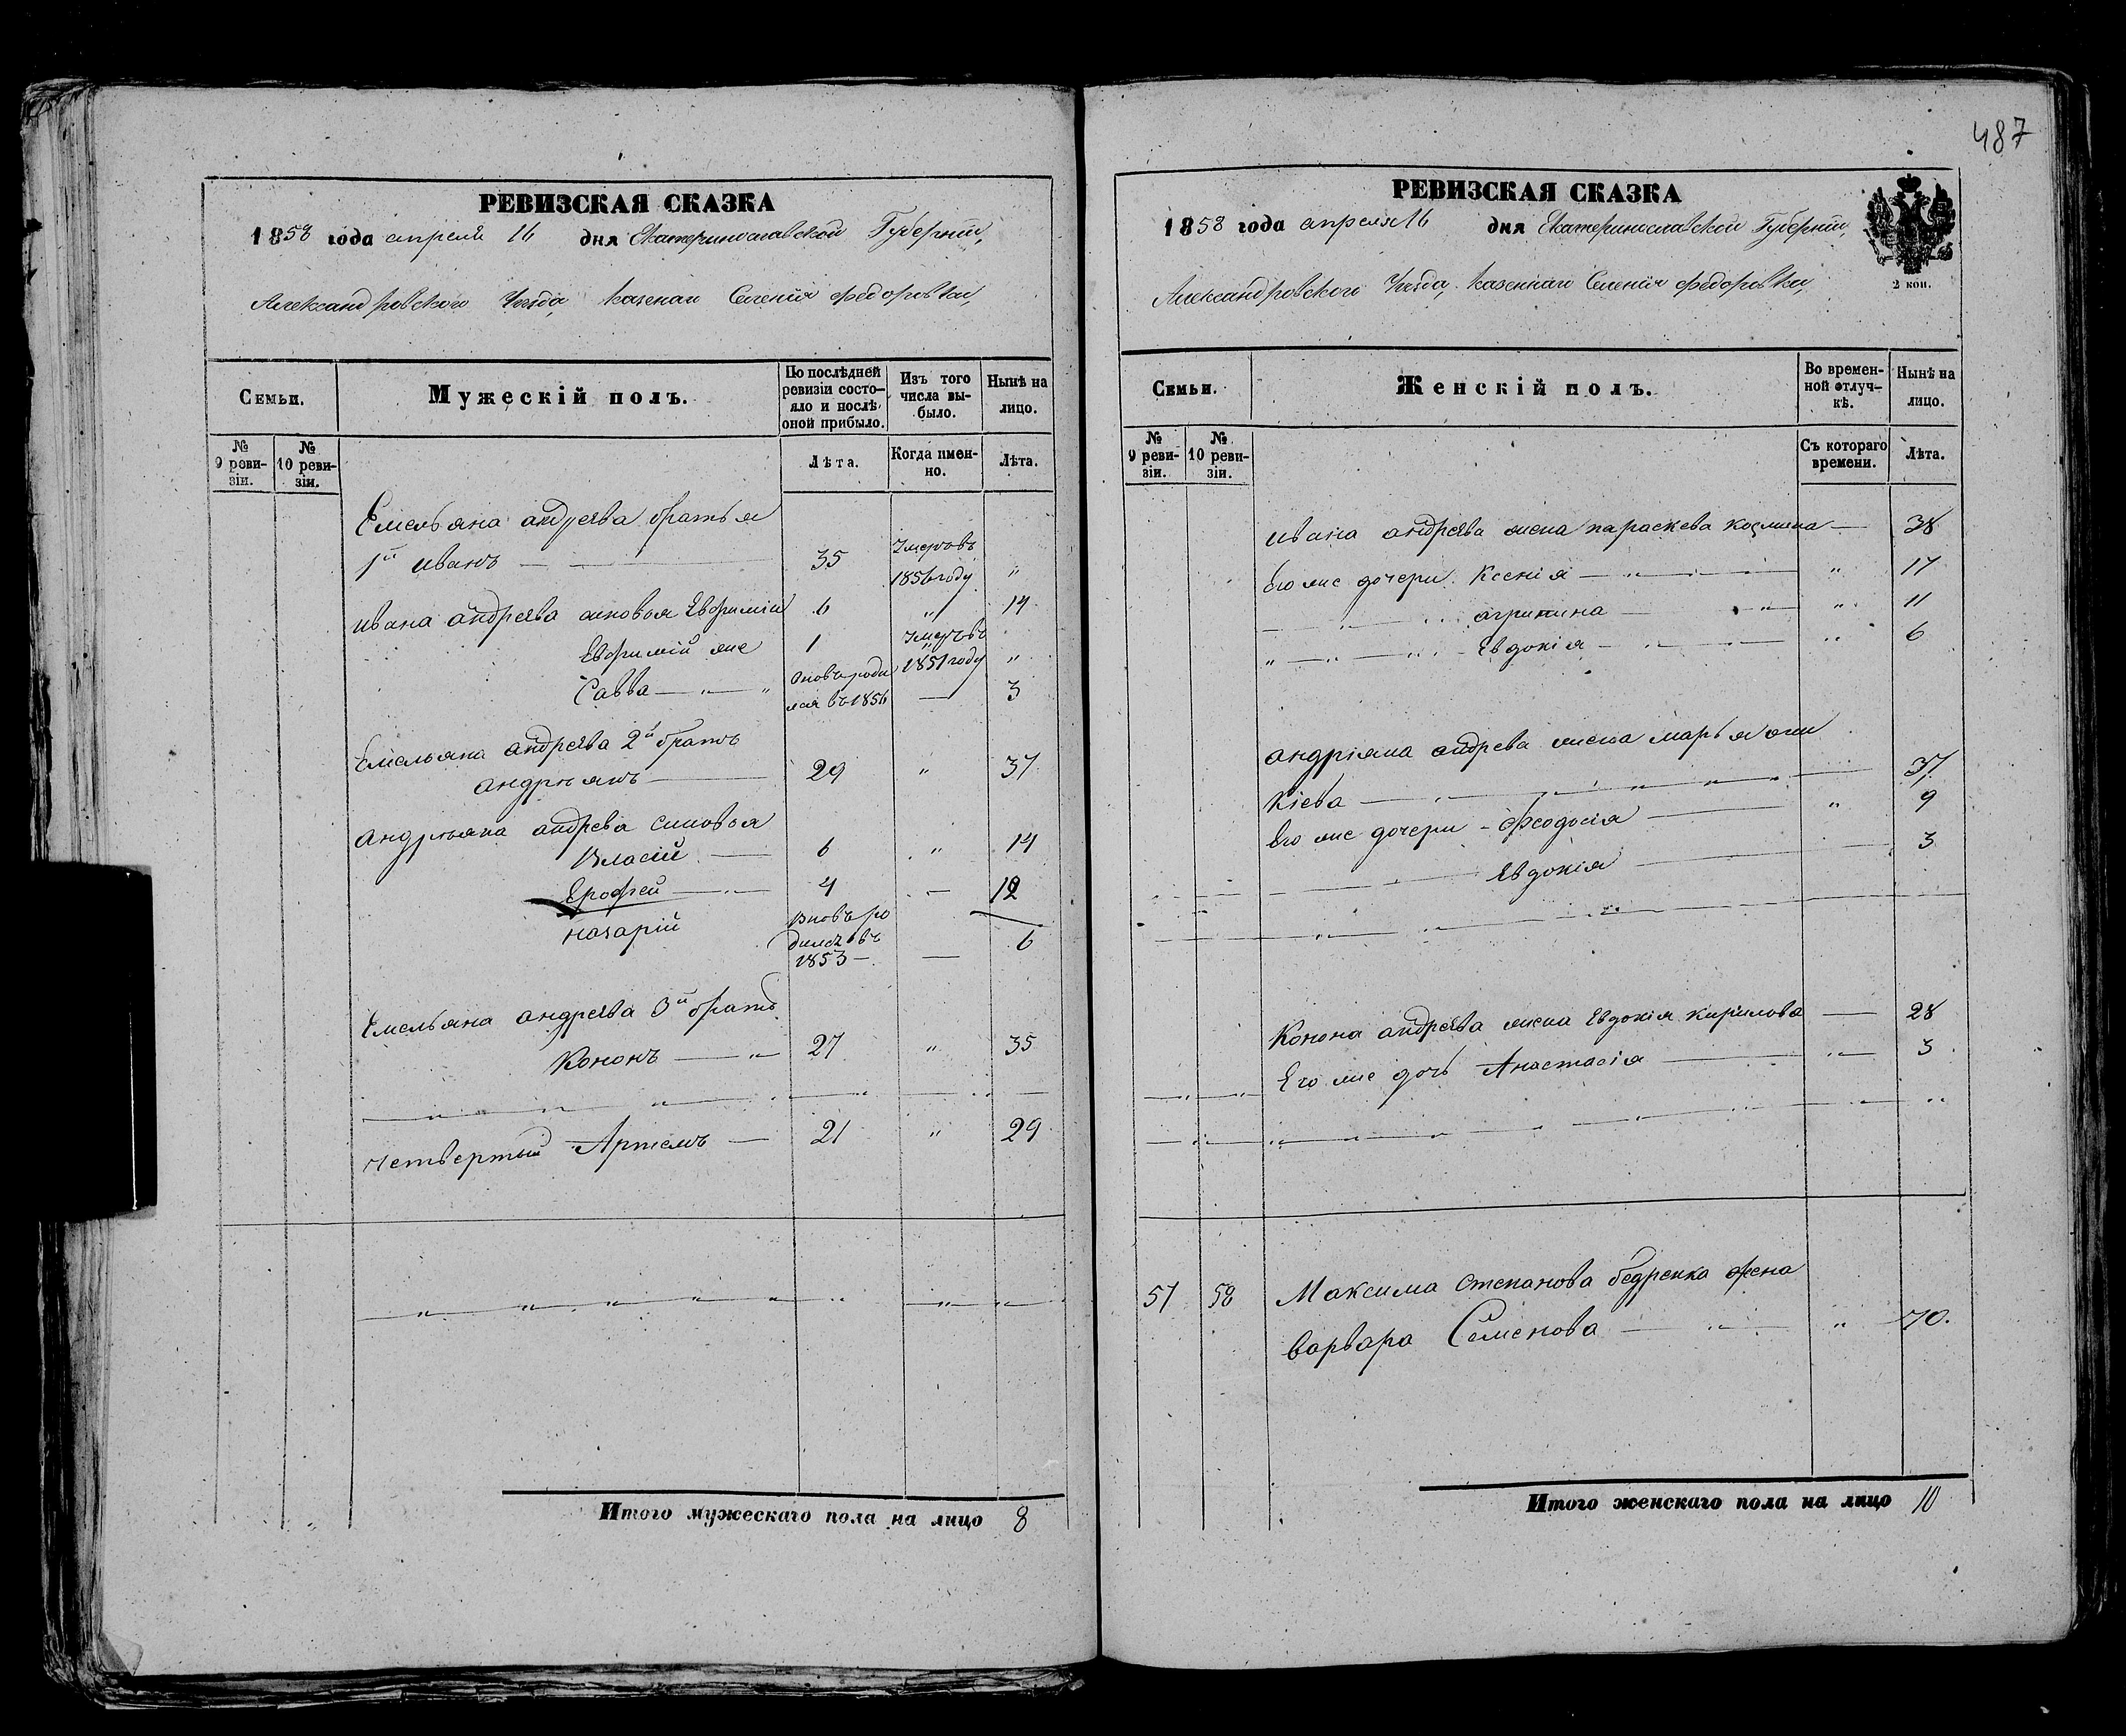 487
РЕВИЗСКАЯ СКАЗКА
1858 года апреля 16 дня Екатеринославской Губернии,
Александровского Уезда, казеннаго Селения Федоровки,
Семьи.
Мужескій полъ.
По послѣдней ревизіи состо-
яло и послѣ
оной прибыло.
Изъ того
числа вы-
было.
Нынѣ на
лицо.
№
9 реви-
зіи.
№
10 реви-
зіи.
Лѣта.
Когда имен-
но.
Лѣта.
Емельяна андреева братья
1й иванъ — 35 Умеръ въ
1856 году "
ивана андреева сыновья Евфимій 6 " 14
Евфимій же 1 Умеръ въ
1851 году "
Савва — " — " вновь роди
лся въ 1856 — 3
Емельяна андреева 2й братъ
андріянъ — 29 " 37
андріяна андрева сыновья
Власій — 6 " 14
Ерофей — " — 4 — 12
назарій вновь ро
дился въ
1853 — — 6
Емельяна андреева 3й братъ
Кононъ — " — 27 " 35
четвертый Артемъ — 21 " 29
Итого мужескаго пола на лицо 8
РЕВИЗСКАЯ СКАЗКА
1858 года апреля 16 дня Екатеринославской Губернии,
Александровского Уезда, казеннаго Селения Федоровки,
2 коп.
Семьи.
Женскій полъ.
Во времен-
ной отлуч-
кѣ.
Нынѣ на
лицо.
№
9 реви-
зіи.
№
10 реви-
зіи.
Съ котораго
времени.
Лѣта.
ивана андреева жена параскева козмина — 38
Его же дочери Ксенія — " — " 17
агрипина — " — " 11
" — " — " Евдокія — " 6
андріяна андрева жена марья они
кіева — " — 37
Его же дочери - Феодосія — " 9
Евдокія — 3
Конона андреева жена Евдокія кирилова — 28
Его же дочь Анастасія — " — 3
57 58 Максима степанова бедренка жена
варвара Семенова — " — " 70.
Итого женскаго пола на лицо 10